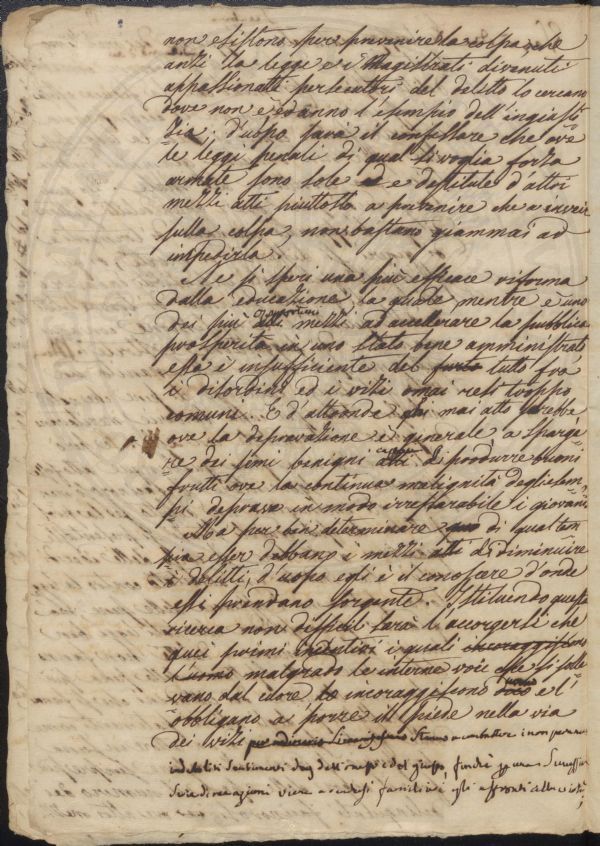 non esistono per prevenire la colpa, che
anzi la legge e i Magistrati divenuti
appassionati persecutori del delitto lo cercano
dove non è, e danno l'esempio dell'ingiusti
zia; d'uopo sarà il confessare che ove
le leggi penali di qual si voglia forza
armate sono sole e destitute d'altri
mezzi atti piuttosto a prevenire che a inveir
sulla colpa, non bastano giammai ad
impedirla.
Ne si speri una più efficace riforma
dalla educazione la quale mentre è uno
dei più opportuni mezzi ad accellerare la pubblica
prosperità in uno stato bene amministrato
essa è insufficiente del tutto fra
i disordini ed i vizi omai resi troppo
comuni. E d'altronde mai atto sarebbe
ove la depravazione è generale a sparge
re dei semi benigni capaci di produrre buoni
frutti ove la continua malignità degli esem
pi deprava in modo irreparabile i giovani.
Ma per ben determinare di qual tem
pra esser debbano i mezzi atti a diminuire
i delitti, d'uopo egli è il conoscere d'onde
essi prendano sorgente. Istituendo questa
ricerca non difficil sarà l'accorgersi che
quei primi incentivi i quali incoraggiscono
l'uomo malgrado le interne voci che si solle
vano dal cuore lo incoraggiscono e l'
obbligano a porre il piede nella via
dei vizi a combattere i non per anco
indeboliti sentimenti dell'onesto e del giusto, finché per una successiva
serie di azioni viene a rendersi familiari gli affronti alla virtù;